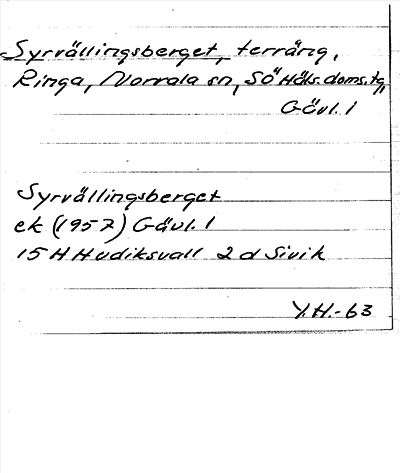 Syrvällingsberget, terräng,
Ringa, Norrala sn, Sö Häls. doms. tg,
Gävl. l
Syrvällingsberget
ek (1957) Gävl. l
15 H Hudiksvall 2 d Sivik
Y.H.-63